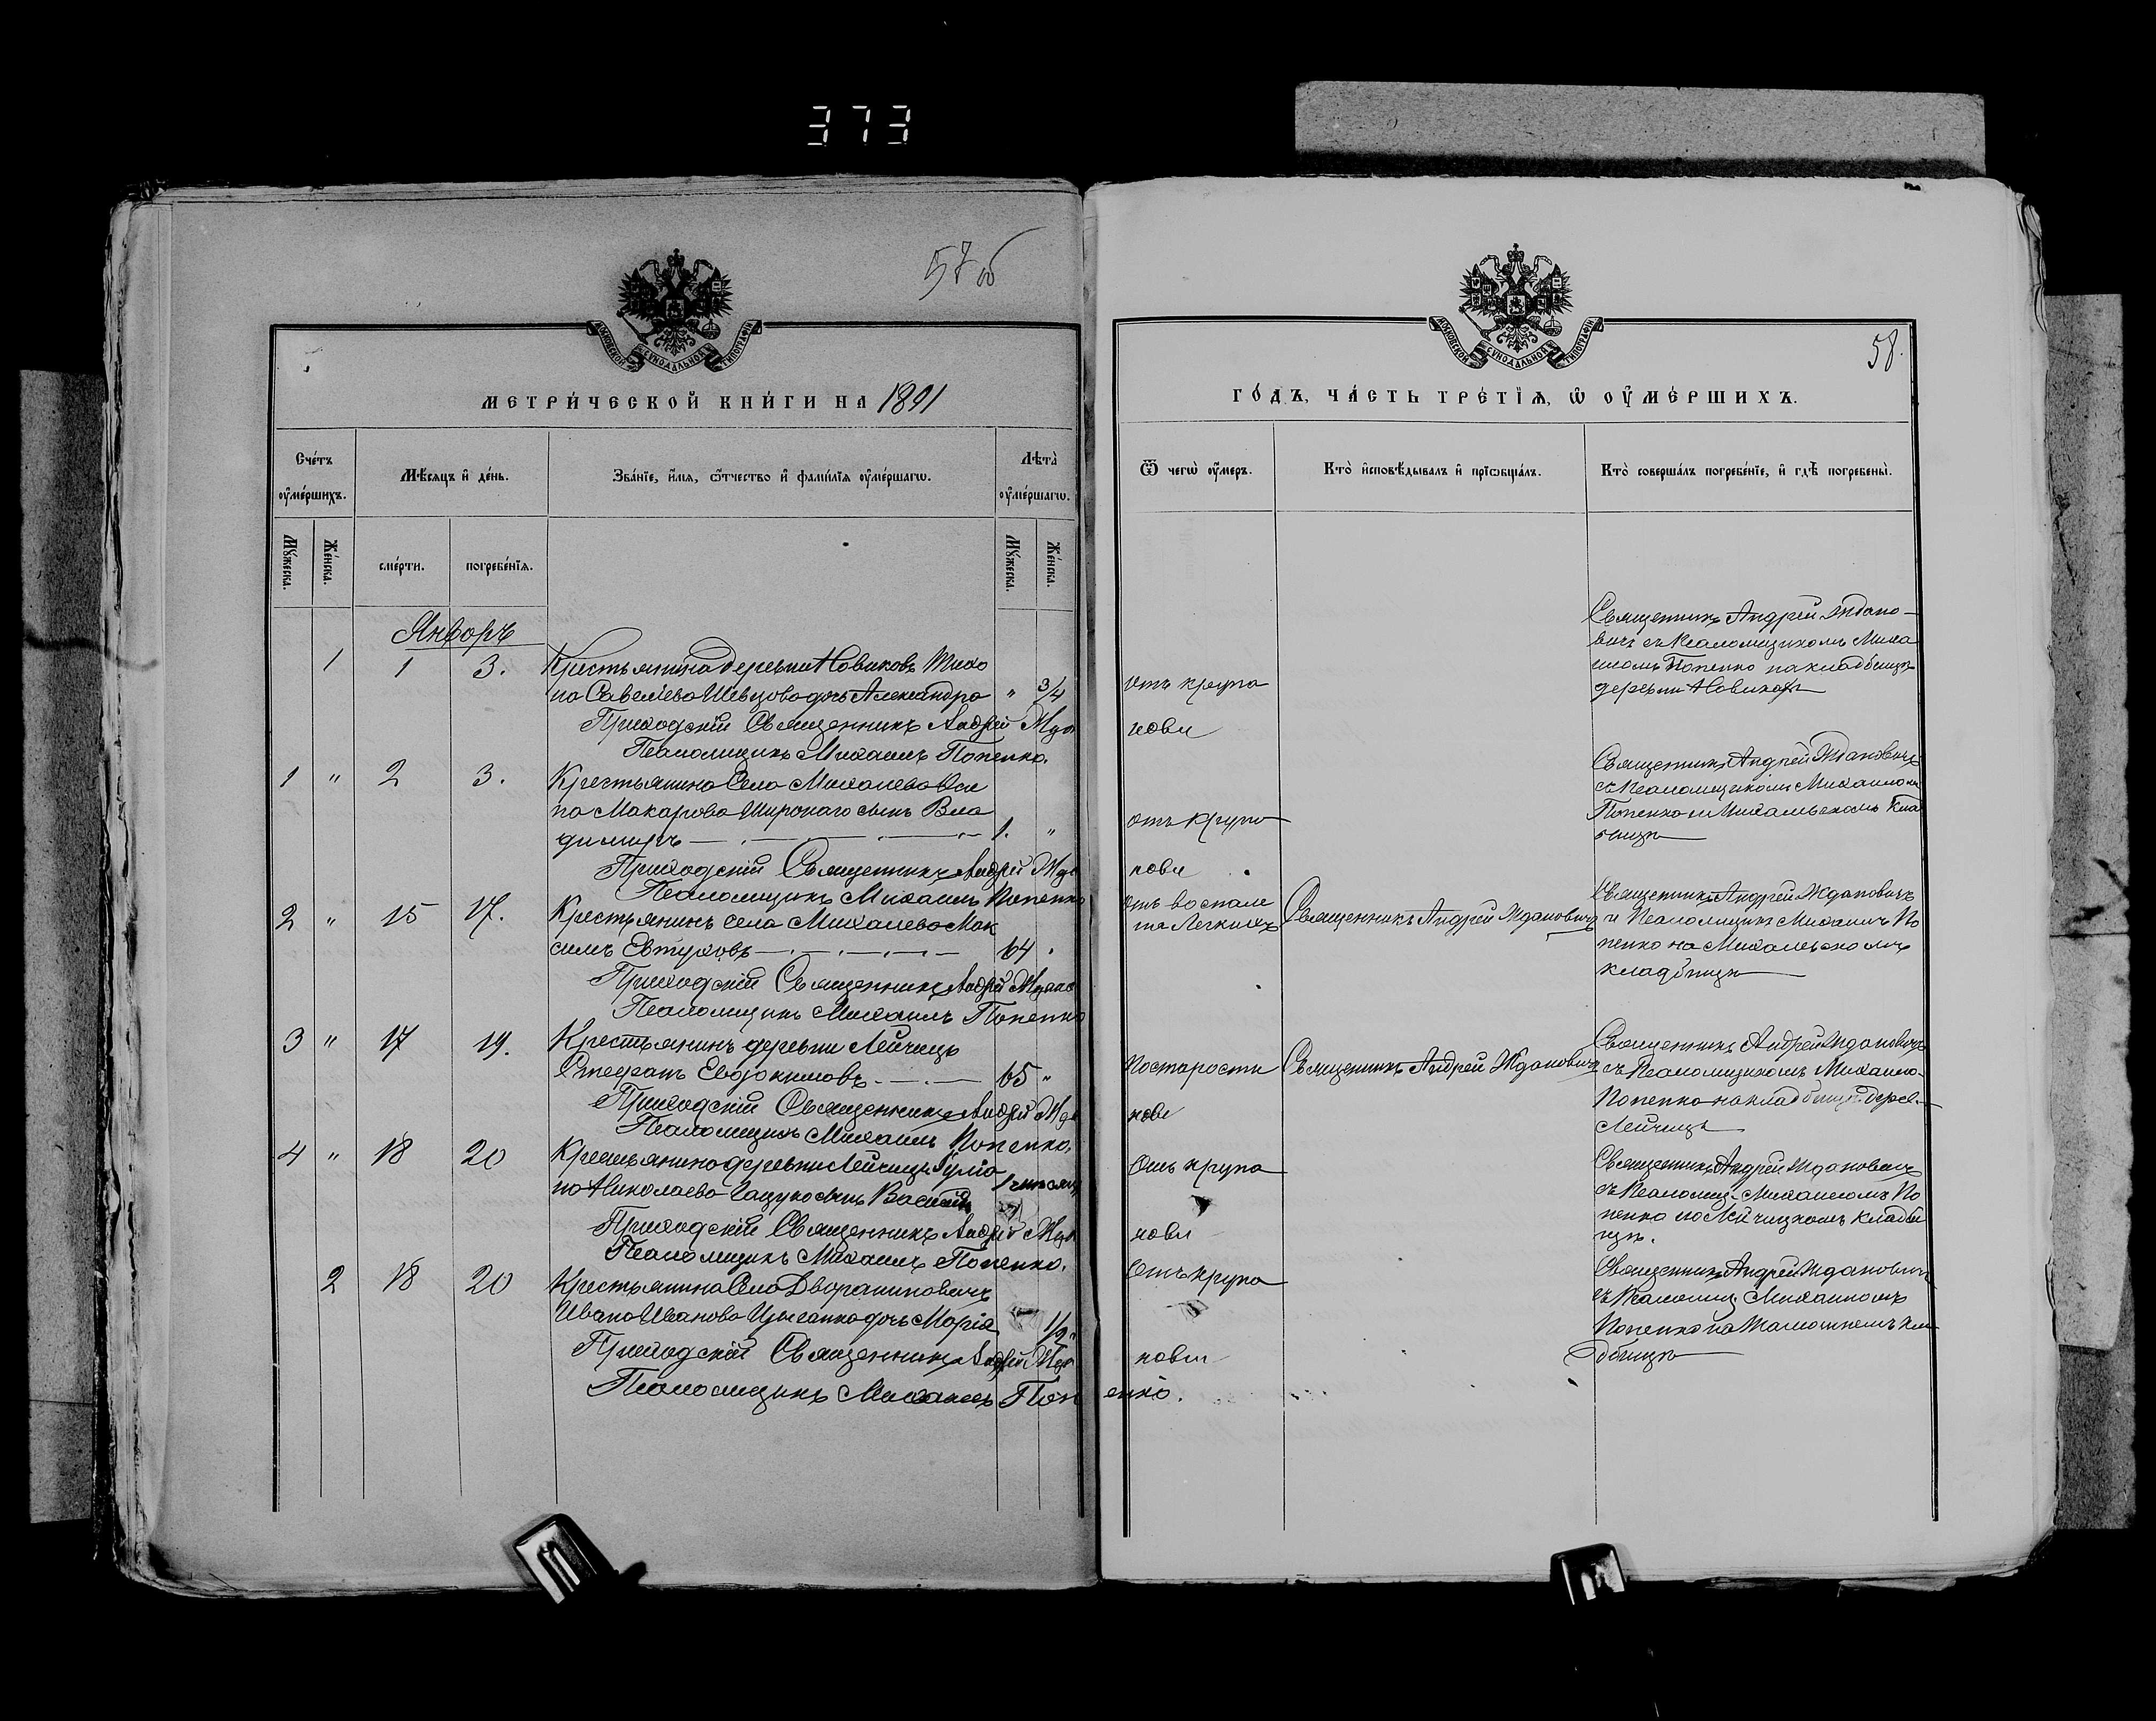 373
57 об
МОСКОВСКОЙ СѴНОДАЛЬНОЙ ТИПОГРАФІИ
МЕТРИ́ЧЕСКОЙ КНИ́ГИ НА 1891
Сче́тъ оу҆ме́ршихъ.
Мѣ́сяцъ и҆ де́нь.
Зва́нїе, и҆́мя, ѻ҆́тчество и҆ фами́лїя оу҆ме́ршагѡ.
Лѣта̀ оу҆ме́ршагѡ.
Мꙋ́жеска.
Же́нска.
сме́рти.
погребе́нїя.
Мꙋ́жеска.
Же́нска.
Январь
1 1 3. Крестьянина деревни Новиковъ Тихо
на Савельева Шевцова дочь Александра " 3/4
Приходскій Священникъ Андрей Жда
Псаломщикъ Михаилъ Попенко.
1 " 2 3. Крестьянина Села Михалева Оси
па Макарова Широкаго сынъ Вла
димиръ 1. "
Приходскій Священникъ Андрей Жда
Псаломщикъ Михаилъ Попенко
2 " 15 17. Крестьянинъ села Михалева Мак
симъ Евтуховъ 64
Приходскій Священникъ Андрей Ждано
Псаломщикъ Михаилъ Попенко
3 " 17 19. Крестьянинъ деревни Лейчицъ
Стефанъ Евдокимовъ 65 "
Приходскій Священникъ Андрей Жда
Псаломщикъ Михаилъ Попенко.
4 " 18 20 Крестьянина деревни Лейчицъ Гулiа
на Николаева Гацуко сынъ Василій
Приходскій Священникъ Андрей Жда
Псаломщикъ Михаилъ Попенко.
2 18 20 Крестьянина Села Двораниновичъ
Ивана Иванова Цыганка дочь Марія 1/2
Приходскій Священникъ Андрей Жда
Псаломщикъ Михаилъ Поп
58.
МОСКОВСКОЙ СѴНОДАЛЬНОЙ ТИПОГРАФІИ
ГО́ДЪ, ЧА́СТЬ ТРЕ́ТЇѦ, Ѡ҆ ОУ҆МЕ́РШИХЪ.
Ѿ чегѡ̀ оу҆́меръ.
Кто̀ и҆сповѣ́дывалъ и҆ прїѡбща́лъ.
Кто̀ соверша́лъ погребе́нїе, и҆ гдѣ̀ погребены̀.
Священникъ Андрей Ждано-
вичъ съ Псаломщикомъ Миха
иломъ Попенко на кладбищѣ
деревни Новиковъ
отъ крупа
нови
Священникъ Андрей Ждановичъ
съ Псаломщикомъ Михаиломъ
Попенко на Михалевскомъ клад
бищѣ
отъ крупа
нови
отъ воспале
нія Легкихъ
Священникъ Андрей Ждановичъ
Священникъ Андрей Ждановичъ
и Псаломщикъ Михаилъ По
пенко на Михалевскомъ
кладбищѣ
По старости
Священникъ Андрей Ждановичъ
Священникъ Андрей Ждановичъ
съ Псаломщикомъ Михаило
Попенко на кладбищѣ дерев.
Лейчицъ
нови
Отъ крупа
Священникъ Андрей Ждановичъ
съ Псаломщ. Михаиломъ По
пенко на Лейчицкомъ кладби
щѣ.
нови
Отъ крупа
Священникъ Андрей Ждановичъ
съ Псаломщ Михаиломъ
Попенко на кла
дбищѣ
нови
енко.